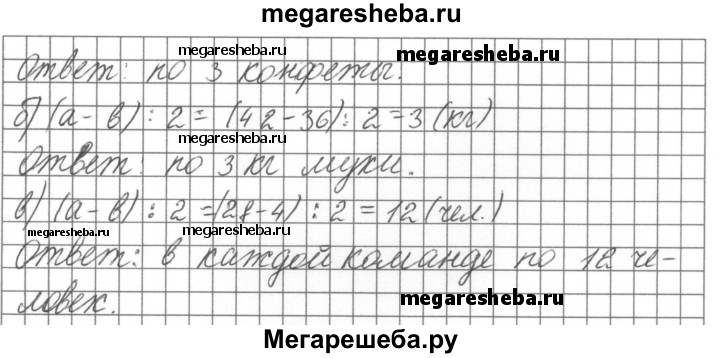 megaresheba.ru
megaresheba.ru
megaresheba.ru
Ответ: по 3 конфеты.
б) (а - в) : 2 = (42 - 36) : 2 = 3 (кг)
megaresheba.ru
megaresheba.ru
Ответ: по 3 кг муки.
в) (а - в) : 2 = (28 - 4) : 2 = 12 (чел.)
megaresheba.ru
megaresheba.ru
Ответ: в каждой команде по 12 че-
ловек.
megaresheba.ru
Мегарешеба.ру